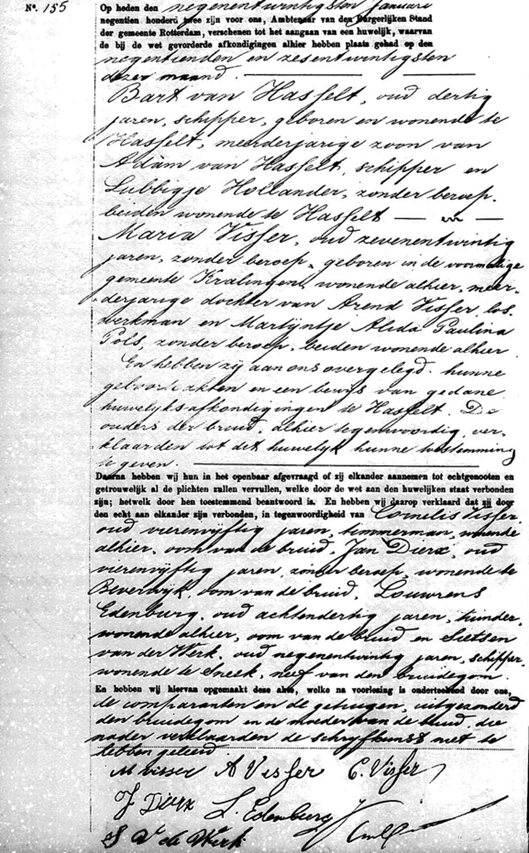 No. 155
Op heden den negenentwintigsten Januari
negentien honderd twee zijn voor ons, Ambtenaar van den Burgerlijken Stand
der gemeente Rotterdam, verschenen tot het aangaan van een huwelijk, waarvan
de bij de wet gevorderde afkondigingen alhier hebben plaats gehad op den
negentienden en zesentwintigsten
dezer maand.
Bart van Hasselt, oud dertig
jaren, schipper, geboren en wonende te
Hasselt, meerderjarige zoon van
Adam van Hasselt, schipper en
Lubbigje Hollander, zonder beroep,
beiden wonende te Hasselt — en —
Maria Visser, oud zevenentwintig
jaren, zonder beroep, geboren in de voormalige
gemeente Kralingen, wonende alhier, meer-
derjarige dochter van Arend Visser, los
werkman en Martijntje Alida Paulina
Pols, zonder beroep, beiden wonende alhier
En hebben zij aan ons overgelegd: hunne
geboorteakten en een bewijs van gedane
huwelijksafkondigingen te Hasselt. De
ouders der bruid, alhier tegenwoordig ver-
klaarden tot dit huwelijk hunne toestemming
te geven.
Daarna hebben wij hun in het openbaar afgevraagd of zij elkander aannemen tot echtgenooten en
getrouwelijk al de plichten zullen vervullen, welke door de wet aan den huwelijken staat verbonden
zijn; hetwelk door hen toestemmend beantwoord is. En hebben wij daarop verklaard dat zij door
den echt aan elkander zijn verbonden, in tegenwoordigheid van Cornelis Visser,
oud vierenvijftig jaren, timmerman, wonende
alhier, oom van de bruid, Jan Dierx, oud
vierenvijftig jaren, zonder beroep, wonende te
Beverwijk, oom van de bruid, Louwrens
Edenburg, oud achtendertig jaren, tuinder
wonende alhier, oom van de bruid en Sietsen
van der Werk, oud negenentwintig jaren, schipper
wonende te Sneek, neef van den bruidegom.
En hebben wij hiervan opgemaakt deze akte, welke na voorlezing is onderteekend door ons,
de comparanten en de getuigen, uitgezonderd
den bruidegom en de moeder van de bruid, die
nader verklaarden de schrijfkunst niet te
hebben geleerd.
M Visser A Visser C. Visser
J Dierx L. Edenburg
S V de Werk